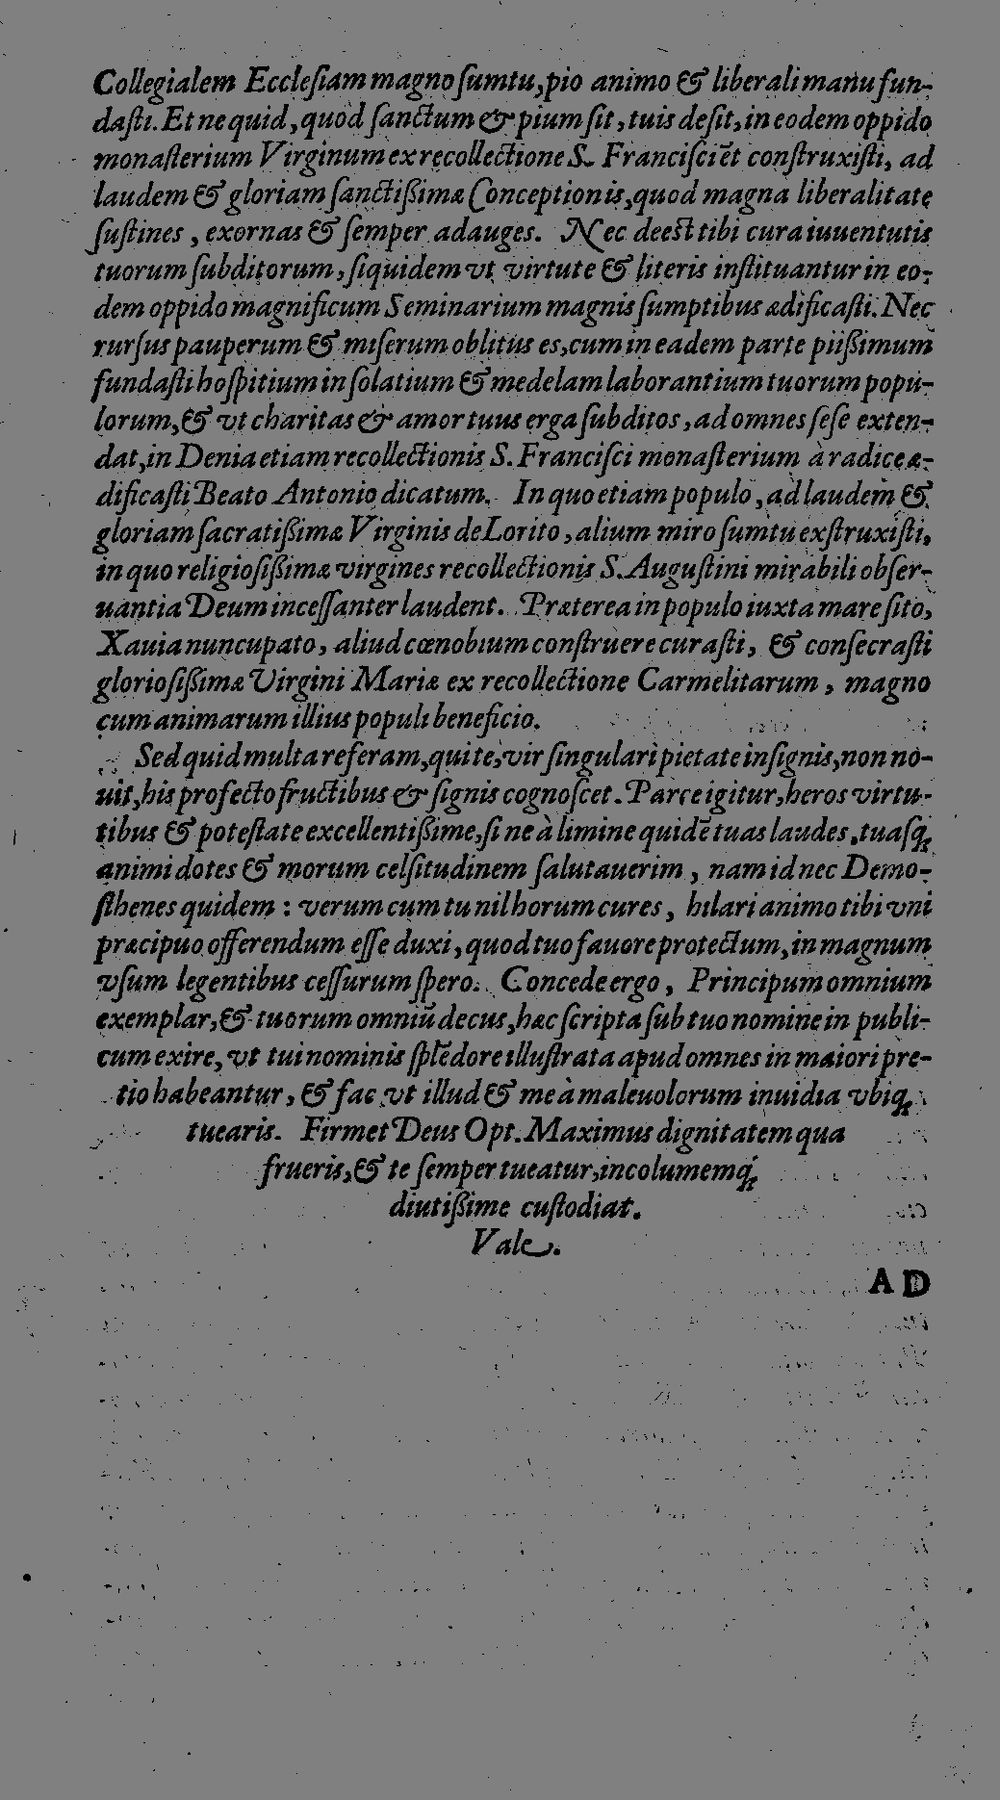 Collegialem Eccleſiam magno ſumtu, pio animo & liberali manu fun-
daſti. Et ne quid, quod ſanctum & pium ſit, tuis deſit, in eodem oppido
monaſterium Virginum ex recollectione S. Franciſci ēt conſtruxiſti, ad
laudem & gloriam ſanctißimæ Conceptionis, quod magna liberalitate
ſuſtines, exornas & ſemper adauges. Nec deeſt tibi cura iuuentutis
tuorum ſubditorum, ſiquidem vt virtute & literis inſtituantur in eo-
dem oppido magnificum Seminarium magnis ſumptibus ædificaſti. Nec
rurſus pauperum & miſerum oblitus es, cum in eadem parte piißimum
fundaſti hoſpitium in ſolatium & medelam laborantium tuorum popu-
lorum, & vt charitas & amor tuus erga ſubditos, ad omnes ſeſe exten-
dat, in Denia etiam recollectionis S. Franciſci monaſterium à radice æ-
dificaſti Beato Antonio dicatum. In quo etiam populo, ad laudem &
gloriam ſacratißimæ Virginis de Lorito, alium miro ſumtu exſtruxiſti,
in quo religioſißimæ virgines recollectionis S. Auguſtini mirabili obſer-
uantia Deum inceſſanter laudent. Præterea in populo iuxta mare ſito,
Xauia nuncupato, aliud cœnobium conſtruere curaſti, & conſecraſti
glorioſißimæ Virgini Mariæ ex recollectione Carmelitarum, magno
cum animarum illius populi beneficio.
Sed quid multa referam, qui te, vir ſingulari pietate inſignis, non no-
uit, his profecto fructibus & ſignis cognoſcet. Parce igitur, heros virtu-
tibus & poteſtate excellentißime, ſi ne à limine quidē tuas laudes, tuaſq́;
animi dotes & morum celſitudinem ſalutauerim, nam id nec Demo-
ſthenes quidem: verum cum tu nil horum cures, hilari animo tibi vni
præcipuo offerendum eſſe duxi, quod tuo fauore protectum, in magnum
vſum legentibus ceſſurum ſpero. Concede ergo, Principum omnium
exemplar, & tuorum omniū decus, hæc ſcripta ſub tuo nomine in publi-
cum exire, vt tui nominis ſplēdore illuſtrata apud omnes in maiori pre-
tio habeantur, & fac vt illud & me à maleuolorum inuidia vbiq;
tuearis. Firmet Deus Opt. Maximus dignitatem qua
frueris, & te ſemper tueatur, incolumemq́;
diutißime cuſtodiat.
Vale.
AD